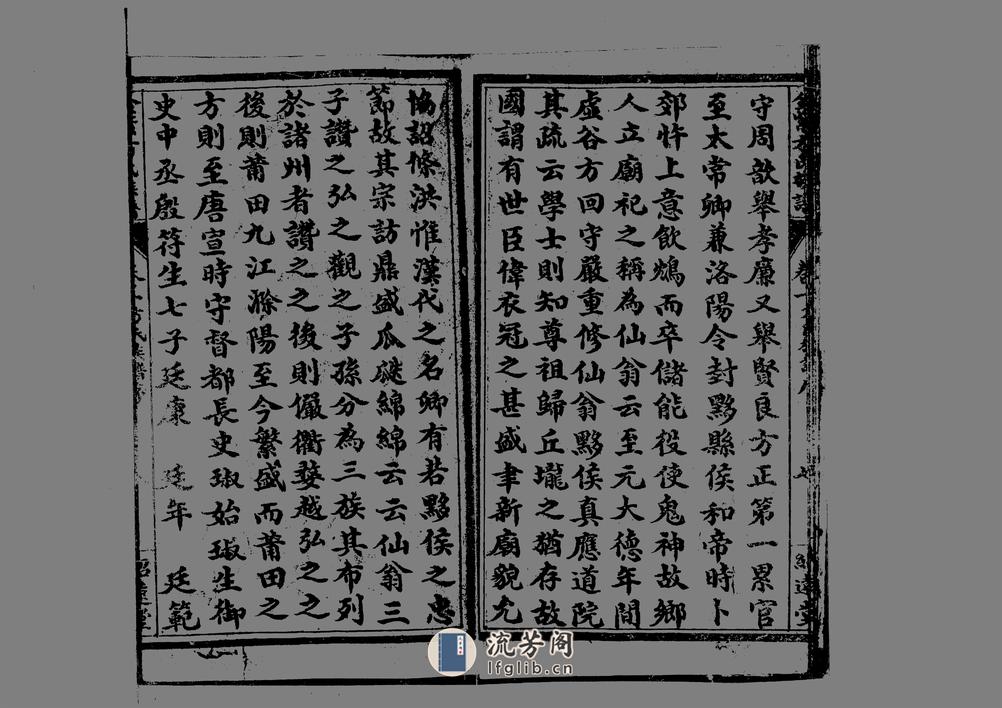 守周歆舉孝廉又舉賢良方正第一累官
至太常卿兼洛陽令封黟縣侯和帝時卜
郊忤上意飲鴆而卒儲能役使鬼神故鄉
人立廟祀之稱為仙翁云至元大德年間
虛谷方回守嚴重修仙翁黟侯真應道院
其疏云學士則知尊祖歸丘壠之猶存故
國謂有世臣偉衣冠之甚盛聿新廟貌允
協詔條洪惟漢代之名卿有若黟侯之忠
節故其宗訪鼎盛瓜瓞綿綿云云仙翁三
子讚之弘之觀之子孫分為三族其布列
於諸州者讚之之後則儼衢婺越弘之之
後則莆田九江滁陽至今繁盛而莆田之
方則至唐宣時守督都長史琡始琡生御
史中丞殷符生七子廷康 廷年 廷範
流芳阁
lfglib.cn